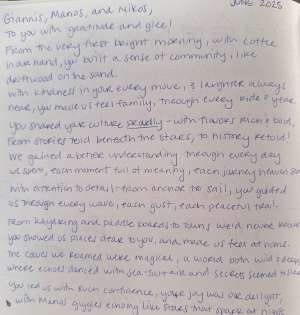 JUNE 2025
Giannis, Manos, and Nikos,
To you with gratitude and glee!
From the very first bright morning, with coffee
in our hand, you built a sense of community, like
driftwood on the sand.
With kindness in your every move, & laughter always
near, you made us feel family, through every ride & year.
You shared your culture proudly - with flavors rich & bold,
From stories told beneath the stars, to history retold!
We gained a better understanding through every day
we spent, each moment full of meaning, each journey heaven
With attention to detail - from anchor to sail, you guided
us through every wave, each gust, each peaceful trail.
From kayaking and paddle boards to towns we'd never known
you showed us places dear to you, and made us feel at home.
The caves we roamed were magical, a world both wild & deep
where echoes danced with sea-salt air and secrets seemed to
You led us with such confidence, your joy was our delight,
with Manos' giggles echoing like stars that spark at night